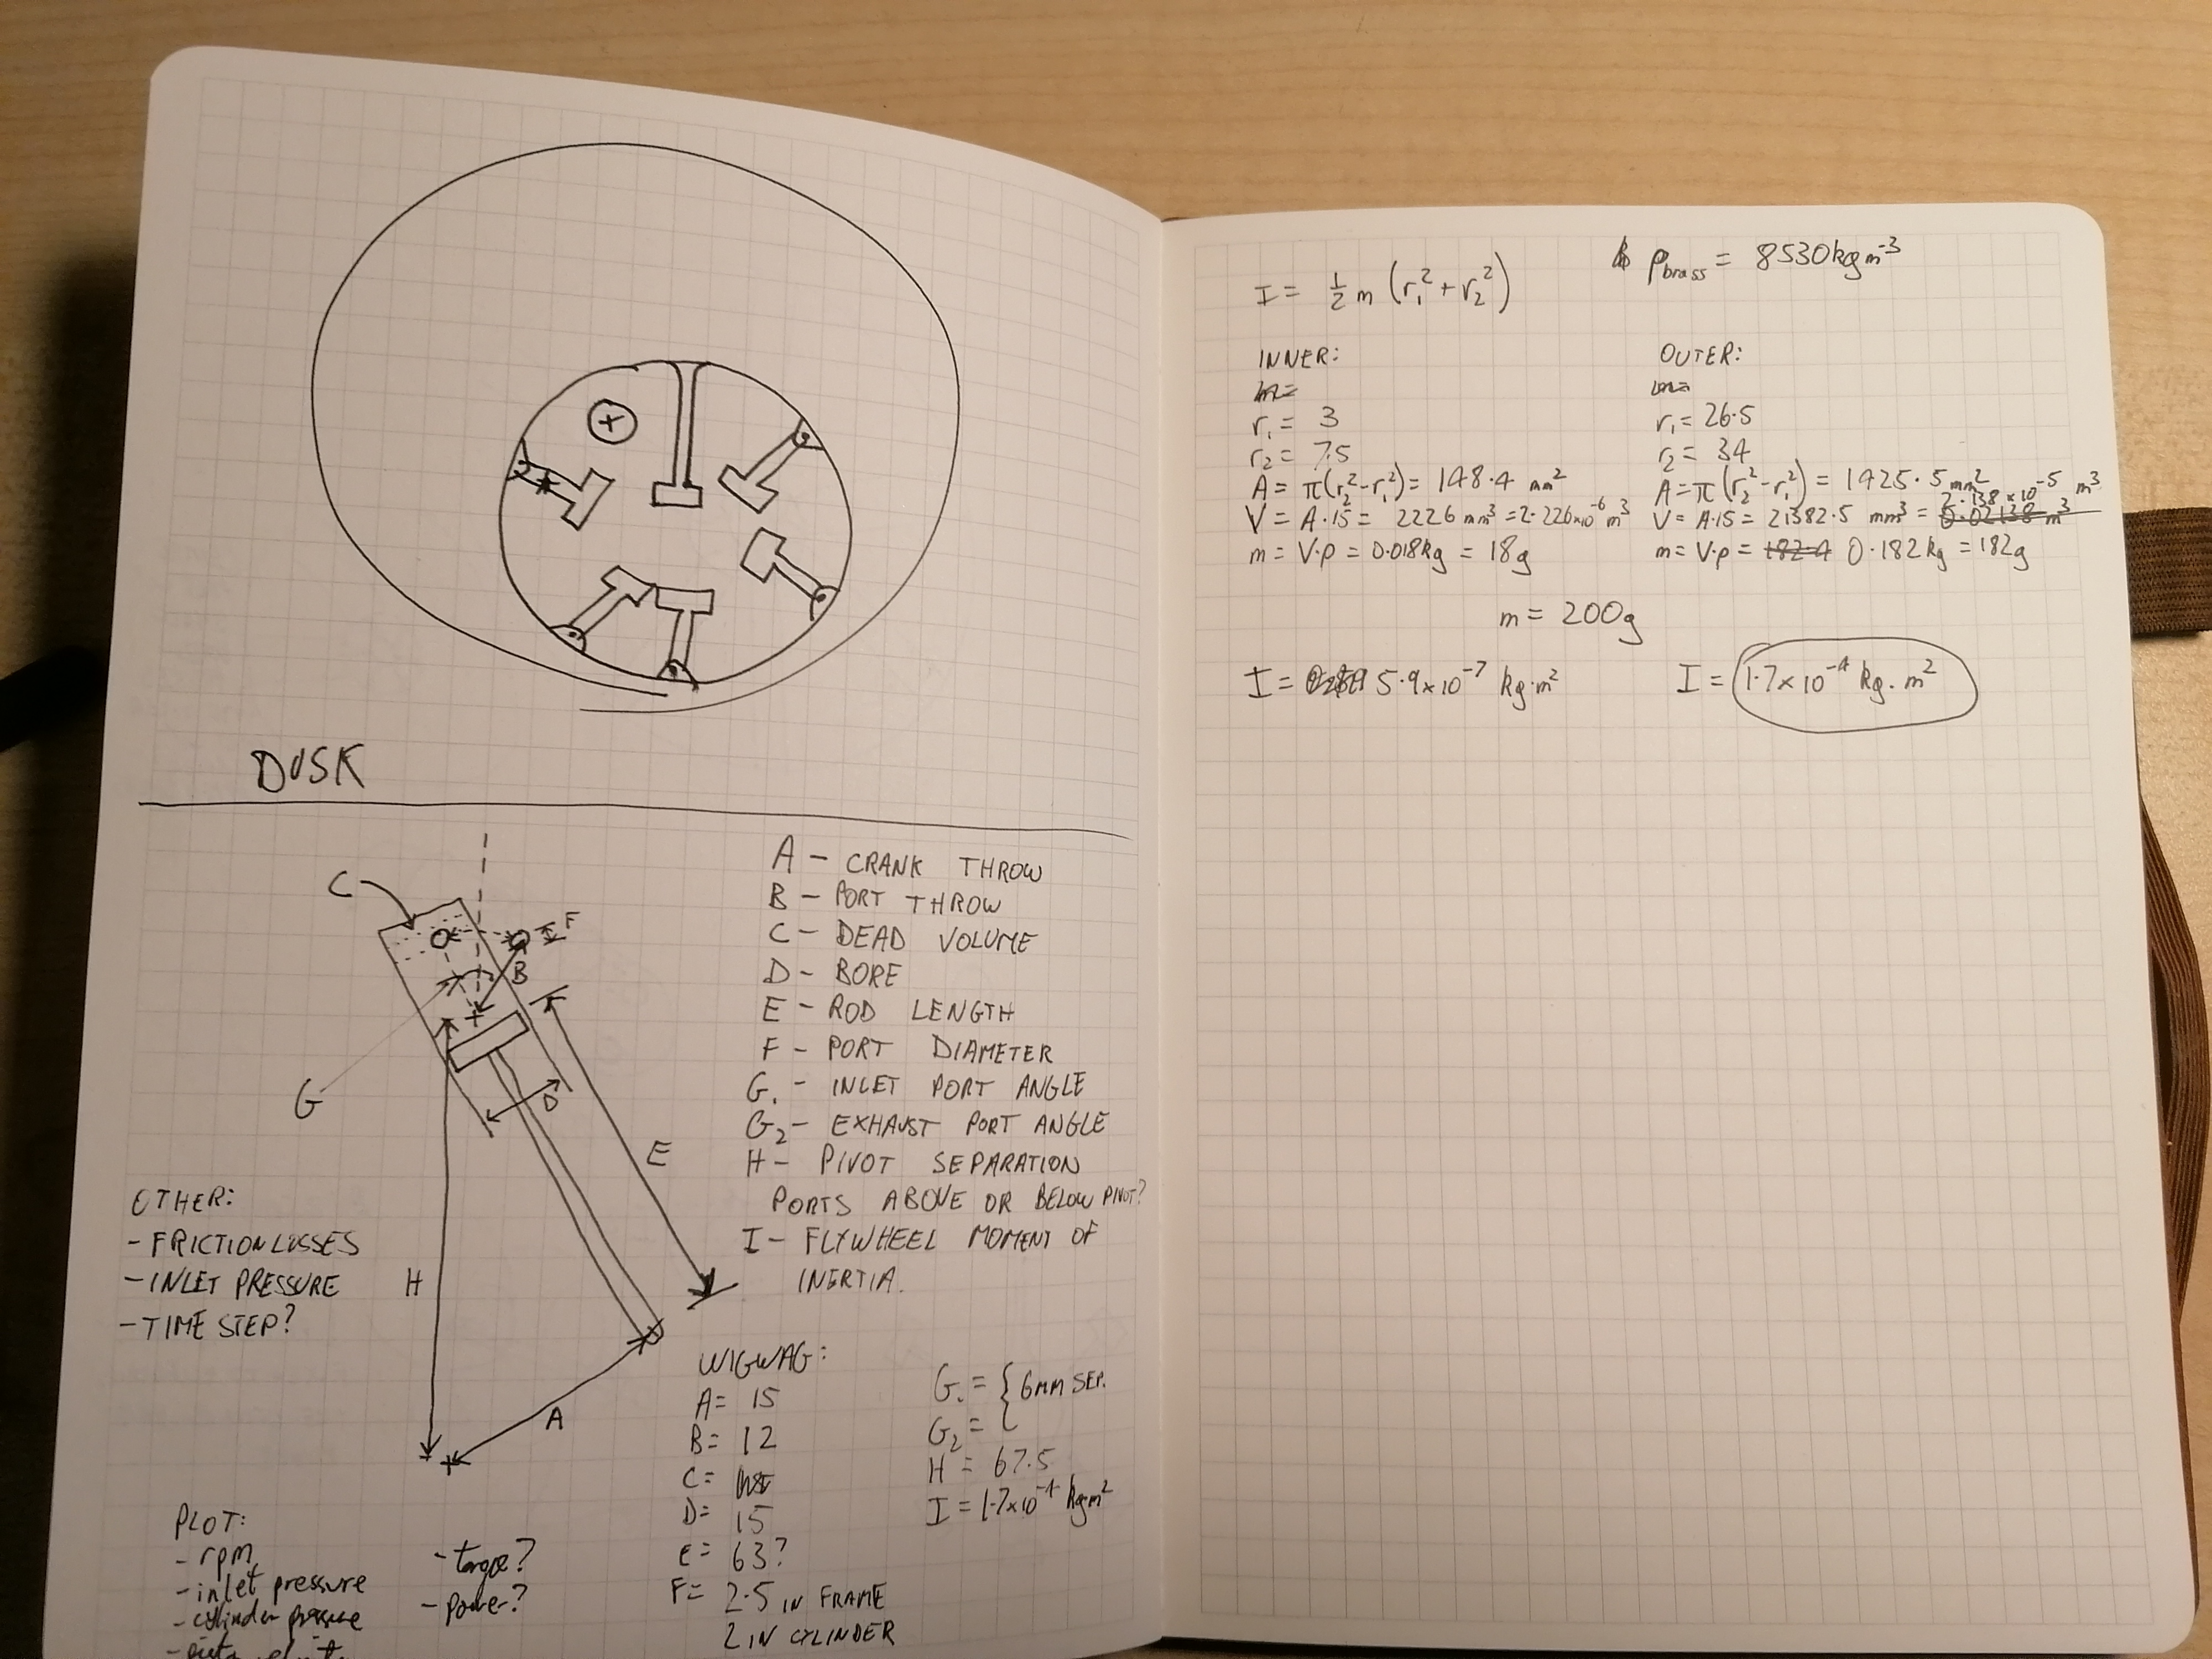 DUSK
C
F
B
G
D
E
H
A
A - CRANK THROW
B - PORT THROW
C - DEAD VOLUME
D - BORE
E - ROD LENGTH
F - PORT DIAMETER
G₁ - INLET PORT ANGLE
G₂ - EXHAUST PORT ANGLE
H - PIVOT SEPARATION
PORTS ABOVE OR BELOW PIVOT?
I - FLYWHEEL MOMENT OF
INERTIA.
OTHER:
- FRICTION LOSSES
- INLET PRESSURE
- TIME STEP?
WIGWAG:
A = 15
B = 12
C =
D = 15
E = 63?
F = 2.5 IN FRAME
2 IN CYLINDER
G₁ = { 6MM SEP.
G₂ =
H = 67.5
I = 1.7x10⁻⁴ kg m²
PLOT:
- rpm
- inlet pressure
- cylinder pressure
- torque?
- power?
I = ½ m (r₁² + r₂²)
ρbrass = 8530 kg m⁻³
INNER:
m=
r₁ = 3
r₂ = 7.5
A = π(r₂²-r₁²) = 148.4 mm²
V = A·15 = 2226 mm³ = 2.226x10⁻⁶ m³
m = V·ρ = 0.018kg = 18g
OUTER:
m=
r₁ = 26.5
r₂ = 34
A = π(r₂²-r₁²) = 1425.5 mm²
V = A·15 = 21382.5 mm³ = 0.02138 m³ 2.138x10⁻⁵ m³
m = V·ρ = 182.4 0.182 kg = 182g
m = 200g
I = 5.9x10⁻⁷ kg·m²
I = 1.7x10⁻⁴ kg·m²